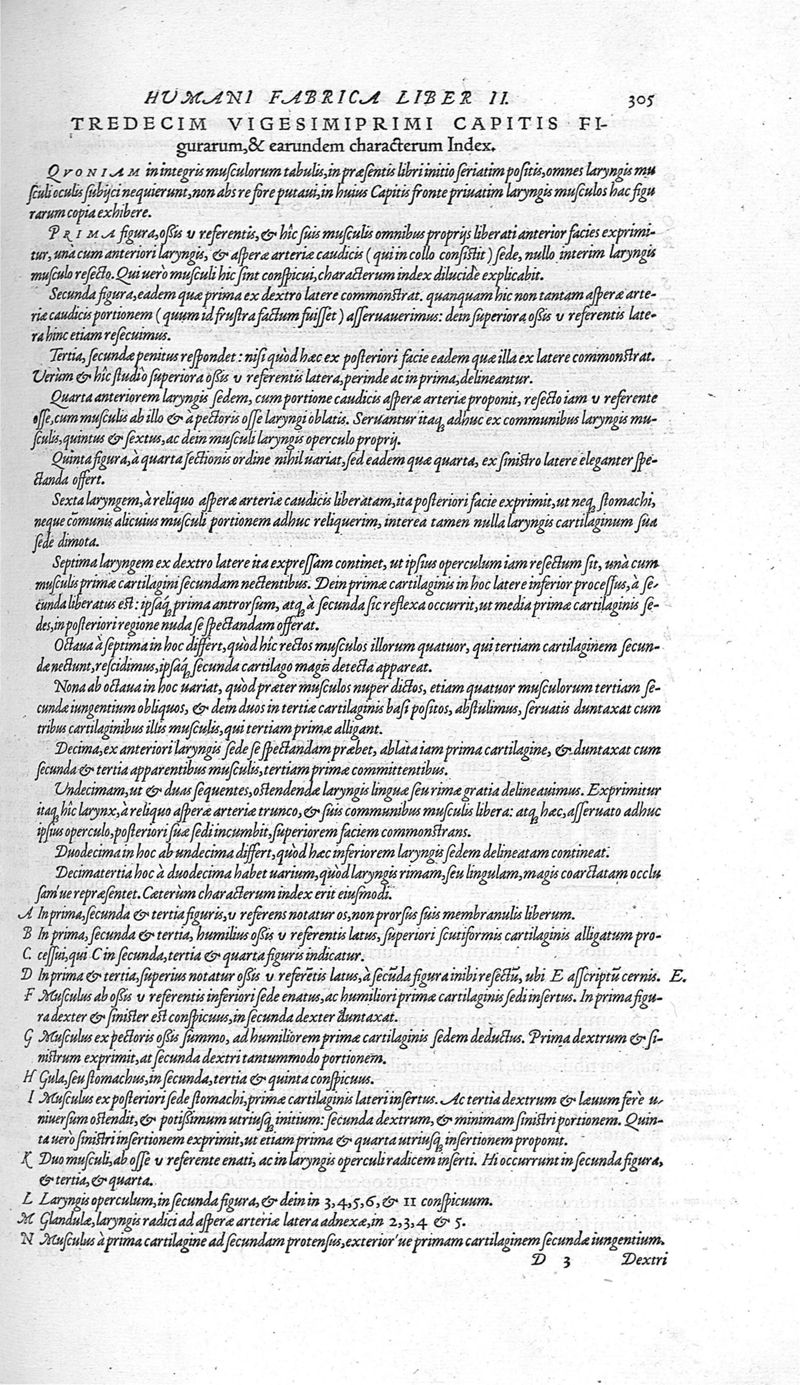 HUMANI FABRICA LIBER II. 305
TREDECIM VIGESIMIPRIMI CAPITIS FI-
gurarum,& earundem characterum Index.
QVONIAM in integris musculorum tabulis,in præsentis libri initio seriatim positis,omnes laryngis mu
sculi oculis subijci nequierunt,non abs re fore putaui,in huius Capitis fronte priuatim laryngis musculos hac figu
rarum copia exhibere.
PRIMA figura,ossis υ referentis,& hîc suis musculis omnibus proprijs liberati anterior facies exprimi-
tur, unà cum anteriori laryngis, & asperæ arteriæ caudicis ( qui in collo consistit ) sede, nullo interim laryngis
musculo resecto. Qui uerò musculi hic sint conspicui,characterum index dilucidè explicabit.
Secunda figura,eadem quæ prima ex dextro latere commonstrat. quanquam hic non tantam asperæ arte-
riæ caudicis portionem ( quum id frustra factum fuisset ) asseruauerimus: dein superiora ossis υ referentis late-
ra hinc etiam resecuimus.
Tertia, secundæ penitus respondet: nisi quòd hæc ex posteriori facie eadem quæ illa ex latere commonstrat.
Verùm & hîc studio superiora ossis υ referentis latera,perinde ac in prima,delineantur.
Quarta anteriorem laryngis sedem, cum portione caudicis asperæ arteriæ proponit, resecto iam υ referente
osse,cum musculis ab illo & à pectoris osse laryngi oblatis. Seruantur itaq; adhuc ex communibus laryngis mu-
sculis,quintus & sextus, ac dein musculi laryngis operculo proprij.
Quinta figura,à quarta sectionis ordine nihil uariat,sed eadem quæ quarta, ex sinistro latere eleganter spe-
ctanda offert.
Sexta laryngem,à reliquo asperæ arteriæ caudicis liberatam,ita posteriori facie exprimit,ut neq; stomachi,
neque cōmunis alicuius musculi portionem adhuc reliquerim, interea tamen nulla laryngis cartilaginum sua
sede dimota.
Septima laryngem ex dextro latere ita expressam continet, ut ipsius operculum iam resectum sit, unà cum
musculis primæ cartilagini secundam nectentibus. Dein primæ cartilaginis in hoc latere inferior processus,à se-
cunda liberatus est: ipsaq́; prima antrorsum, atq; à secunda sic reflexa occurrit,ut media primæ cartilaginis se-
des,in posteriori regione nuda se spectandam offerat.
Octaua à septima in hoc differt,quòd hîc rectos musculos illorum quatuor, qui tertiam cartilaginem secun-
dæ nectunt,rescidimus,ipsaq́; secunda cartilago magis detecta appareat.
Nona ab octaua in hoc uariat, quòd præter musculos nuper dictos, etiam quatuor musculorum tertiam se-
cundæ iungentium obliquos, & dein duos in tertiæ cartilaginis basi positos, abstulimus, seruatis duntaxat cum
tribus cartilaginibus illis musculis,qui tertiam primæ alligant.
Decima,ex anteriori laryngis sede se spectandam præbet, ablata iam prima cartilagine, & duntaxat cum
secunda & tertia apparentibus musculis,tertiam primæ committentibus.
Undecimam,ut & duas sequentes,ostendendæ laryngis linguæ seu rimæ gratia delineauimus. Exprimitur
itaq; hîc larynx,à reliquo asperæ arteriæ trunco, & suis communibus musculis libera: atq; hæc,asseruato adhuc
ipsius operculo,posteriori suæ sedi incumbit,superiorem faciem commonstrans.
Duodecima in hoc ab undecima differt,quòd hæc inferiorem laryngis sedem delineatam contineat.
Decimatertia hoc à duodecima habet uarium,quòd laryngis rimam,seu lingulam,magis coarctatam occlu
sam'ue repræsentet. Cæterùm characterum index erit eiusmodi.
A In prima,secunda & tertia figuris,υ referens notatur os,non prorsus suis membranulis liberum.
B In prima, secunda & tertia, humilius ossis υ referentis latus, superiori scutiformis cartilaginis alligatum pro-
C. cessui,qui C in secunda,tertia & quarta figuris indicatur.
D In prima & tertia,superius notatur ossis υ referētis latus,à secūda figura inibi resectū, ubi E asscriptū cernis. E.
F Musculus ab ossis υ referentis inferiori sede enatus, ac humiliori primæ cartilaginis sedi insertus. In prima figu-
ra dexter & sinister est conspicuus,in secunda dexter duntaxat.
G Musculus ex pectoris ossis summo, ad humiliorem primæ cartilaginis sedem deductus. Prima dextrum & si-
nistrum exprimit,at secunda dextri tantummodo portionem.
H Gula,seu stomachus,in secunda,tertia & quinta conspicuus.
I Musculus ex posteriori sede stomachi,primæ cartilaginis lateri insertus. Ac tertia dextrum & læuum ferè u-
niuersum ostendit, & potissimum utriusq; initium: secunda dextrum, & minimam sinistri portionem. Quin-
ta uerò sinistri insertionem exprimit,ut etiam prima & quarta utriusq; insertionem proponit.
K Duo musculi,ab osse υ referente enati, ac in laryngis operculi radicem inserti. Hi occurrunt in secunda figura,
& tertia,& quarta.
L Laryngis operculum,in secunda figura, & dein in 3,4,5,6, & 11 conspicuum.
M Glandulæ,laryngis radici ad asperæ arteriæ latera adnexæ,in 2,3,4 & 5.
N Musculus à prima cartilagine ad secundam protensus,exterior'ue primam cartilaginem secundæ iungentium.
D 3 Dextri